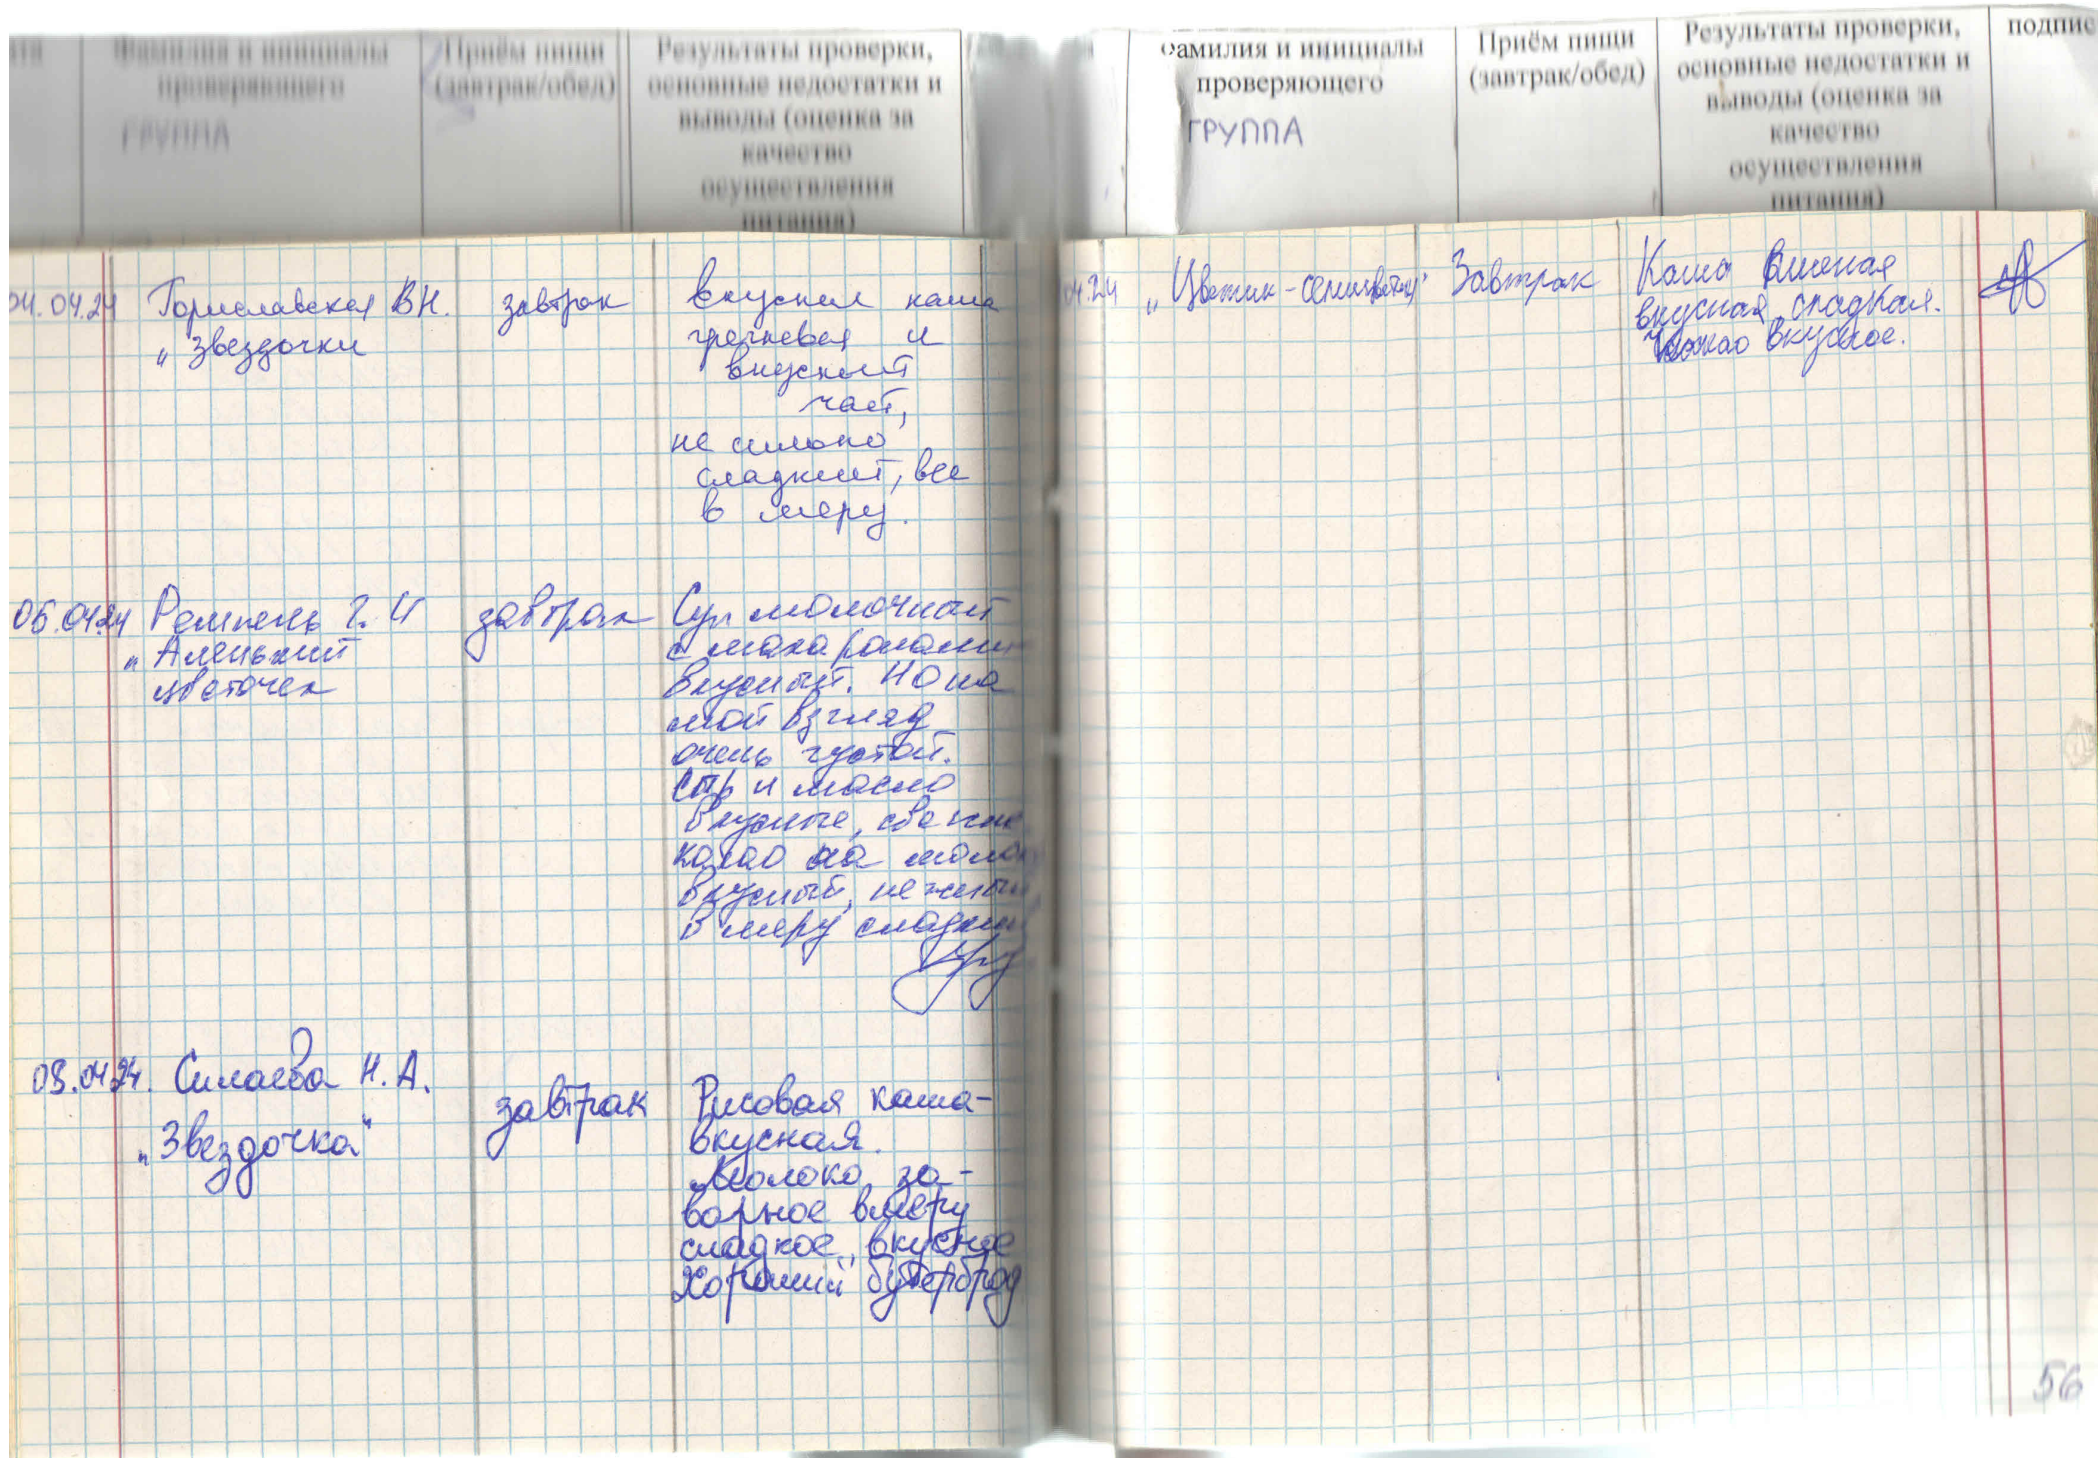 Фамилия и инициалы
проверяющего
ГРУППА
Приём пищи
(завтрак/обед)
Результаты проверки,
основные недостатки и
выводы (оценка за
качество
осуществления
питания)
04.04.24
Гориславская В.Н.
„Звездочки
завтрак
Вкусная каша
гречневая и
вкусный
чай,
не сильно
сладкий, все
в меру.
05.04.24
г. И
„Аленький
цветочек
завтрак
Суп молочный
с макаронами
вкусный. Но на
мой взгляд
очень густой.
Сыр и масло
вкусные, свежие
какао на молоке
вкусный, нежный
в меру сладкий
08.04.24.
Силаева Н.А.
„Звездочка“
завтрак
Рисовая каша-
вкусная.
Молоко за-
варное вмеру
сладкое, вкусное
Хороший бутерброд
Фамилия и инициалы
проверяющего
ГРУППА
Приём пищи
(завтрак/обед)
Результаты проверки,
основные недостатки и
выводы (оценка за
качество
осуществления
питания)
подпис
04.24
„Цветик-семицветик“
Завтрак
Каша
вкусная, сладкая.
какао вкусное.
56